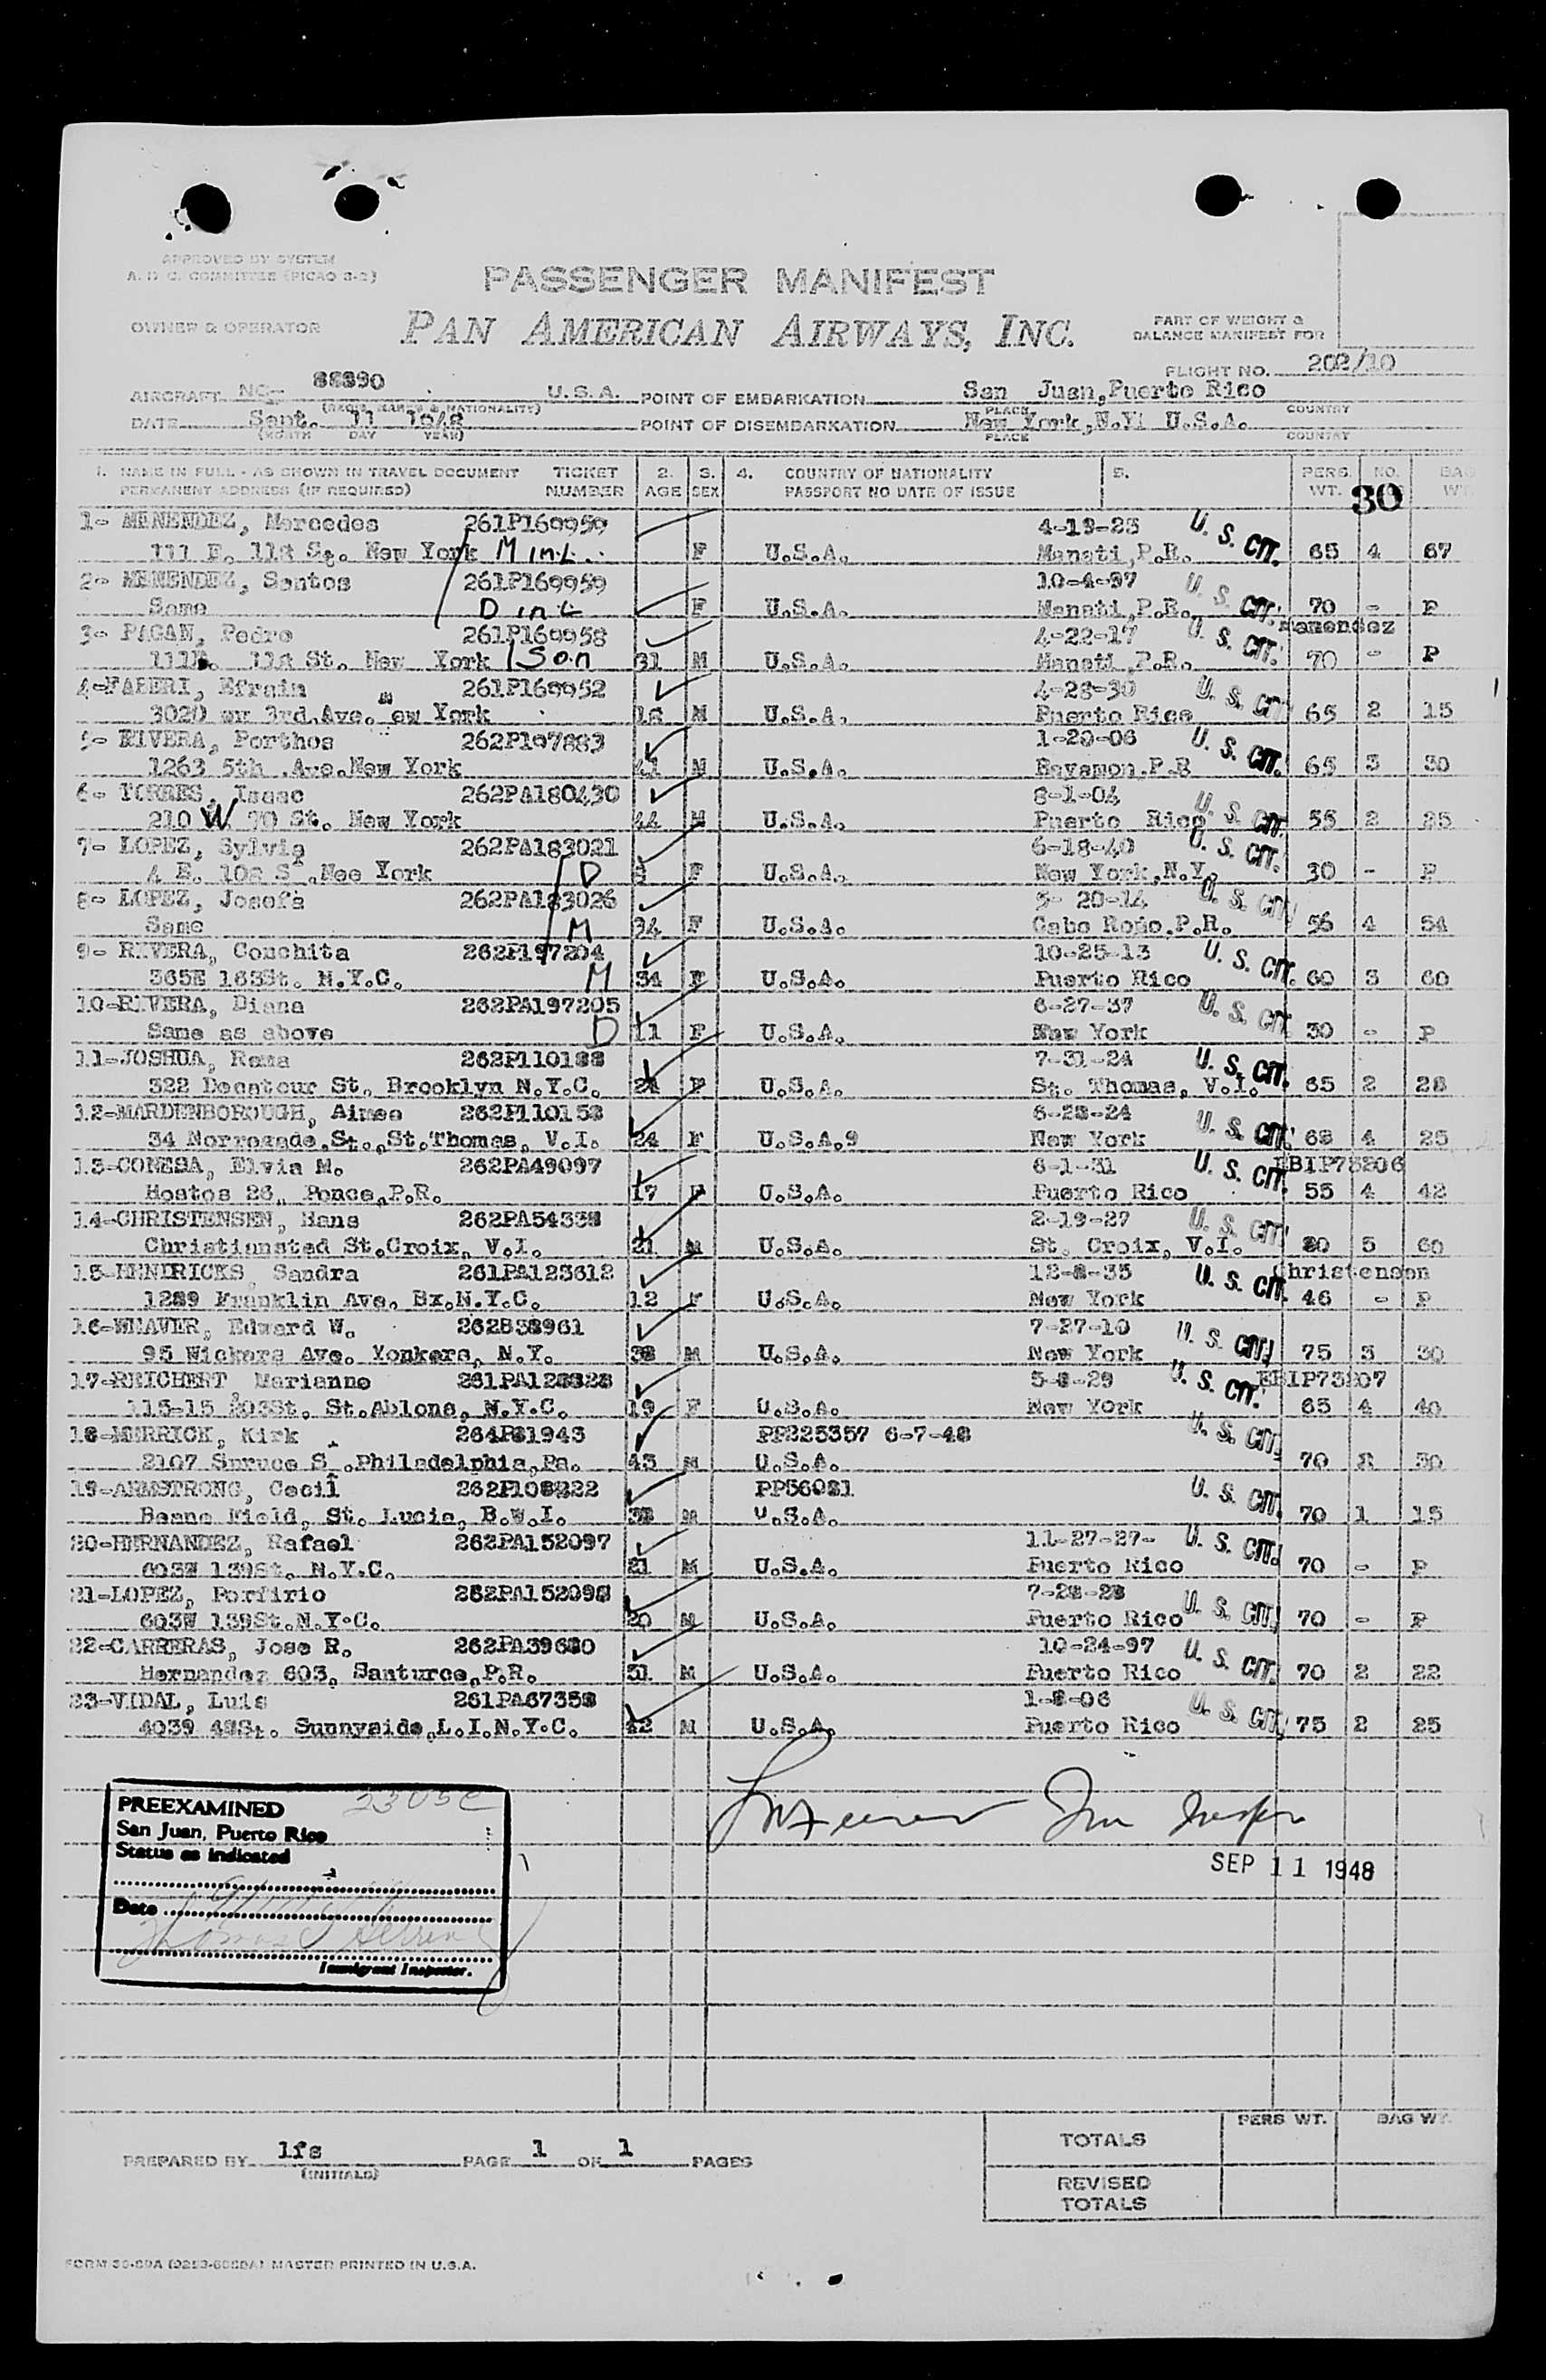 APPROVED BY SYSTEM
A. D C. COMMITTEE (PICAO 3-2)
PASSENGER MANIFEST
OWNER & OPERATOR
PAN AMERICAN AIRWAYS, INC.
PART OF WEIGHT &
BALANCE MANIFEST FOR
FLIGHT NO. 202/10
AIRCRAFT NC- 88890 U.S.A. POINT OF EMBARKATION San Juan, Puerto Rico
PLACE COUNTRY
DATE Sept. 11 1948 POINT OF DISEMBARKATION New York, N.Y. U.S.A.
(MONTH DAY YEAR) PLACE COUNTRY
1. NAME IN FULL - AS SHOWN IN TRAVEL DOCUMENT TICKET 2. 3. 4. COUNTRY OF NATIONALITY 5. PERS. NO. BAG
PERMANENT ADDRESS (IF REQUIRED) NUMBER AGE SEX PASSPORT NO DATE OF ISSUE WT. WT
30
1- MENENDEZ, Mercedes 261P169959 4-19-23 U. S. CIT.
111 E. 112 St. New York M in L. F U.S.A. Manati, P.R. 65 4 67
2- MENENDEZ, Santos 261P169959 10-4-97 U. S. CIT.
Same D in L F U.S.A. Manati, P.R. 70 - P
3- PAGAN, Pedro 261P169958 4-22-17 U. S. CIT. Menendez
111E. 112 St. New York Son 31 M U.S.A. Manati, P.R. 70 - P
4-FABERI, Efrain 261P169952 4-28-30 U. S. CIT
3020 3rd. Ave. ew York 18 M U.S.A. Puerto Rico 65 2 15
5- RIVERA, Porthos 262P197883 1-20-06 U. S. CIT.
1263 5th .Ave.New York 41 M U.S.A. Bayamon, P.R 65 3 30
6- TORRES, Isaac 262PA180430 8-1-04 U. S. CIT
210 W 70 St. New York 44 M U.S.A. Puerto Rico 55 2 25
7- LOPEZ, Sylvia 262PA183021 6-18-40 U. S. CIT.
4 E. 108 St .Nee York D 8 F U.S.A. New York, N.Y. 30 - P
8- LOPEZ, Josefa 262PA183026 5- 20-14 U. S. CIT
Same M 34 F U.S.A. Cabo Rojo, P.R. 56 4 54
9- RIVERA, Conchita 262P197204 10-25-13 U. S. CIT.
365E 163St. N.Y.C. M 34 F U.S.A. Puerto Rico 60 3 60
10-RIVERA, Diana 262PA197205 6-27-37 U. S. CIT
Same as above D 11 F U.S.A. New York 30 - P
11-JOSHUA, Rema 262P110188 7-31-24 U. S. CIT.
322 Decatour St. Brooklyn N.Y.C. 24 F U.S.A. St. Thomas, V.I. 65 2 28
12-MARDENBOROUGH, Aimee 262P110158 6-28-24 U. S. CIT.
34 Norregade, St., St.Thomas, V.I. 24 F U.S.A.9 New York 68 4 25
13-CONESA, Elvia M. 262PA49097 6-1-31 U. S. CIT. EBIP73206
Hostos 26, Ponce, P.R. 17 F U.S.A. Puerto Rico 55 4 42
14-CHRISTENSEN, Hans 262PA54338 2-19-27 U. S. CIT
Christiansted St.Croix, V.I. 21 M U.S.A. St. Croix, V.I. 80 5 60
15-HENDRICKS, Sandra 261PA123612 12-8-35 U. S. CIT. Christensen
1289 Franklin Ave. Bx.N.Y.C. 12 F U.S.A. New York 46 - P
16-WEAVER, Edward W. 262B58961 7-27-10 U. S. CIT.
95 Wickers Ave. Yonkers, N.Y. 38 M U.S.A. New York 75 3 30
17-REICHERT, Marianne 261PA128828 5-8-29 U. S. CIT. EBIP73207
115-15 203St. St.Ablons, N.Y.C. 19 F U.S.A. New York 65 4 40
18-MERRICK, Kirk 264P81943 PP225357 6-7-48 U. S. CIT.
2107 Spruce S .Philadelphia, Pa. 43 M U.S.A. 70 2 30
19-ARMSTRONG, Cecil 262P108222 PP56081 U. S. CIT.
Beane Field, St. Lucia, B.W.I. 38 M U.S.A. 70 1 15
20-HERNANDEZ, Rafael 262PA152097 11-27-27- U. S. CIT.
603W 139St. N.Y.C. 21 M U.S.A. Puerto Rico 70 - P
21-LOPEZ, Porfirio 262PA152098 7-28-28 U. S. CIT.
603W 139St.N.Y.C. 20 M U.S.A. Puerto Rico 70 - P
22-CARRERAS, Jose R. 262PA39680 10-24-97 U. S. CIT.
Hernandez 603, Santurce, P.R. 51 M U.S.A. Puerto Rico 70 2 22
23-VIDAL, Luis 261PA67358 1-8-06 U. S. CIT.
4039 48St. Sunnyside, L.I.N.Y.C. 42 M U.S.A. Puerto Rico 75 2 25
PREEXAMINED 2305C
San Juan, Puerto Rico
Status as indicated
Date
Immigrant Inspector.
SEP 11 1948
PERS WT. BAG WT.
TOTALS
PREPARED BY lfs PAGE 1 OF 1 PAGES
(INITIALS)
REVISED
TOTALS
MASTER PRINTED IN U.S.A.